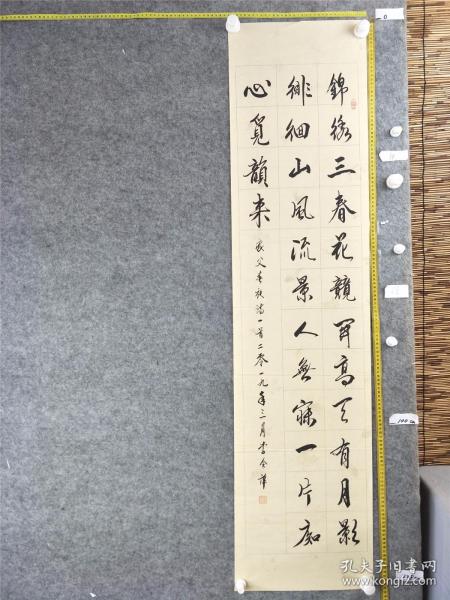 錦繡三春花競開高天有月影
徘徊山風流景人無寐一片痴
心覓韻来
家父春秋詩一首二零一九年三月李全祥
孔夫子旧书网
www.kongfz.com